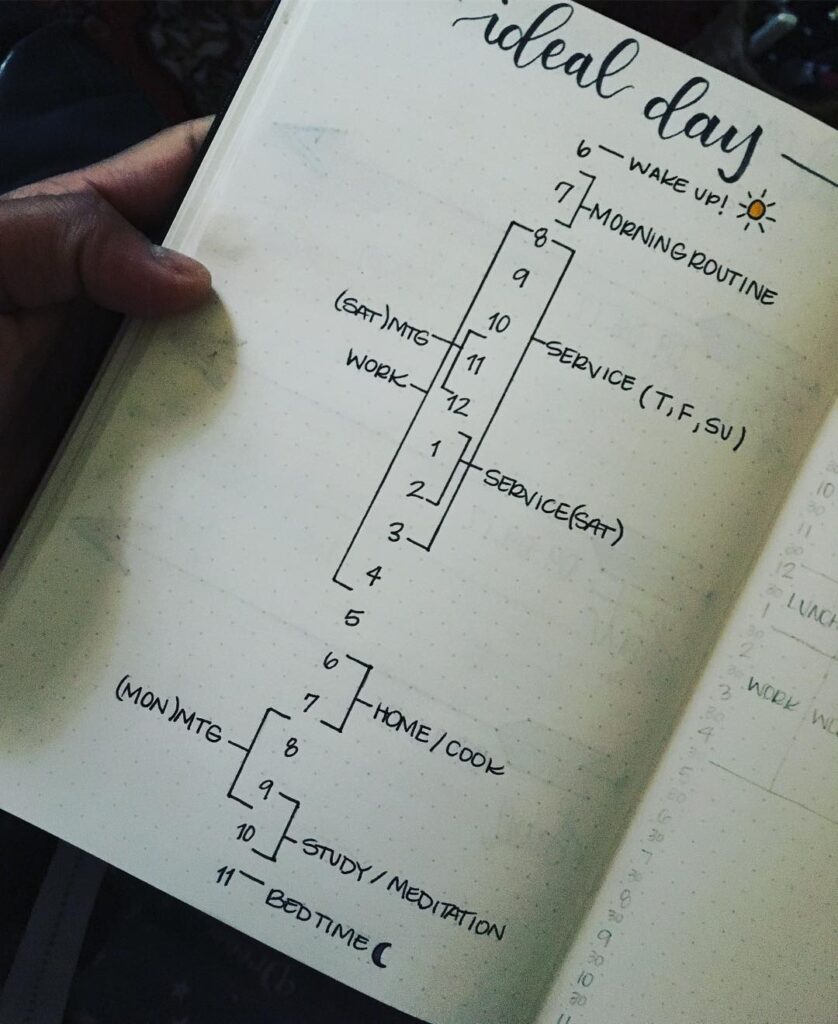 ideal day
6 — WAKE UP!
7 MORNING ROUTINE
8
9
10
(SAT) MTG
11 SERVICE (T, F, SU)
WORK
12
1
2 SERVICE (SAT)
3
4
5
6
7 HOME / COOK
(MON) MTG
8
9
10 STUDY / MEDITATION
11 — BEDTIME
10
30
11
30
12
30 LUNCH
1
30
2
30
3 WORK
30
4
30
5
30
6
30
7
30
8
30
9
30
10
30
11